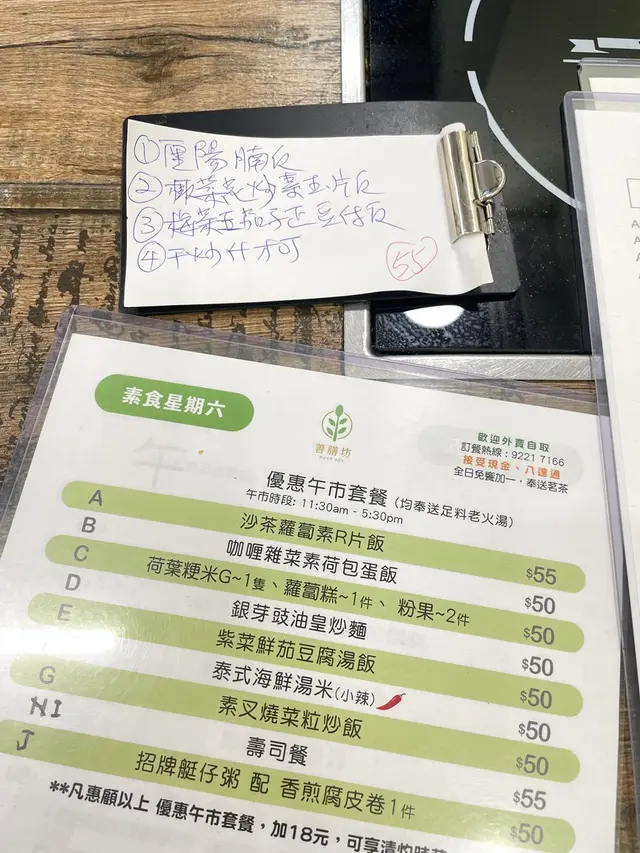 ①
②
③
④干炒
55
素食星期六
善膳坊
歡迎外賣自取
訂餐熱線: 9221 7166
接受現金、八達通
全日免竇加一, 奉送茗茶
優惠午市套餐 (均奉送足料老火湯)
午市時段: 11:30am - 5:30pm
A 沙茶蘿蔔素R片飯 $55
B 咖喱雜菜素荷包蛋飯 $50
C 荷葉粳米G~1隻、蘿蔔糕~1件、粉果~2件 $50
D 銀芽豉油皇炒麵 $50
E 紫菜鮮茄豆腐湯飯 $50
泰式海鮮湯米(小辣) $50
G 素叉燒菜粒炒飯 $50
HI 壽司餐 $55
J 招牌艇仔粥 配 香煎腐皮卷1件 $50
**凡惠顧以上 優惠午市套餐, 加18元, 可享清灼時